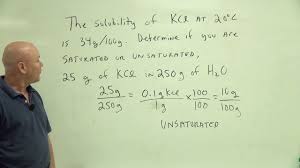 The solubility of KCl at 20°C
is 34g/100g. Determine if you are
SATURATED OR UNSATURATED,
25 g of KCl in 250 g of H₂O
25g/250g = 0.1g KCl/1g × 100/100 = 10g/100g
UNSATURATED